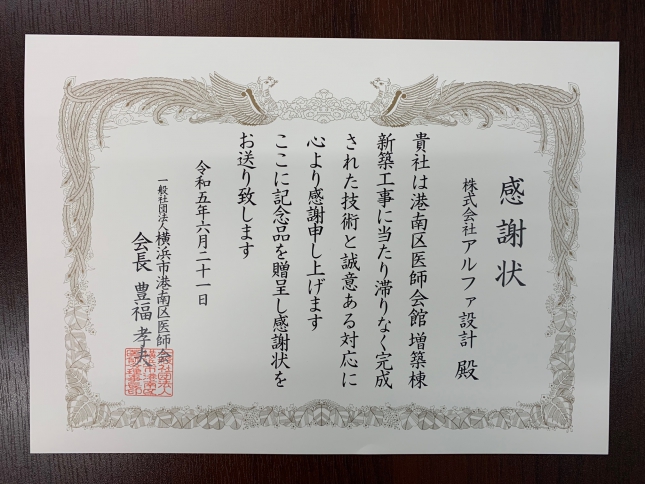 感謝状
株式会社アルファ設計 殿
貴社は港南区医師会館 増築棟
新築工事に当たり滞りなく完成
された技術と誠意ある対応に
心より感謝申し上げます
ここに記念品を贈呈し感謝状を
お送り致します
令和五年六月二十一日
一般社団法人横浜市港南区医師会
会長 豊福 孝夫